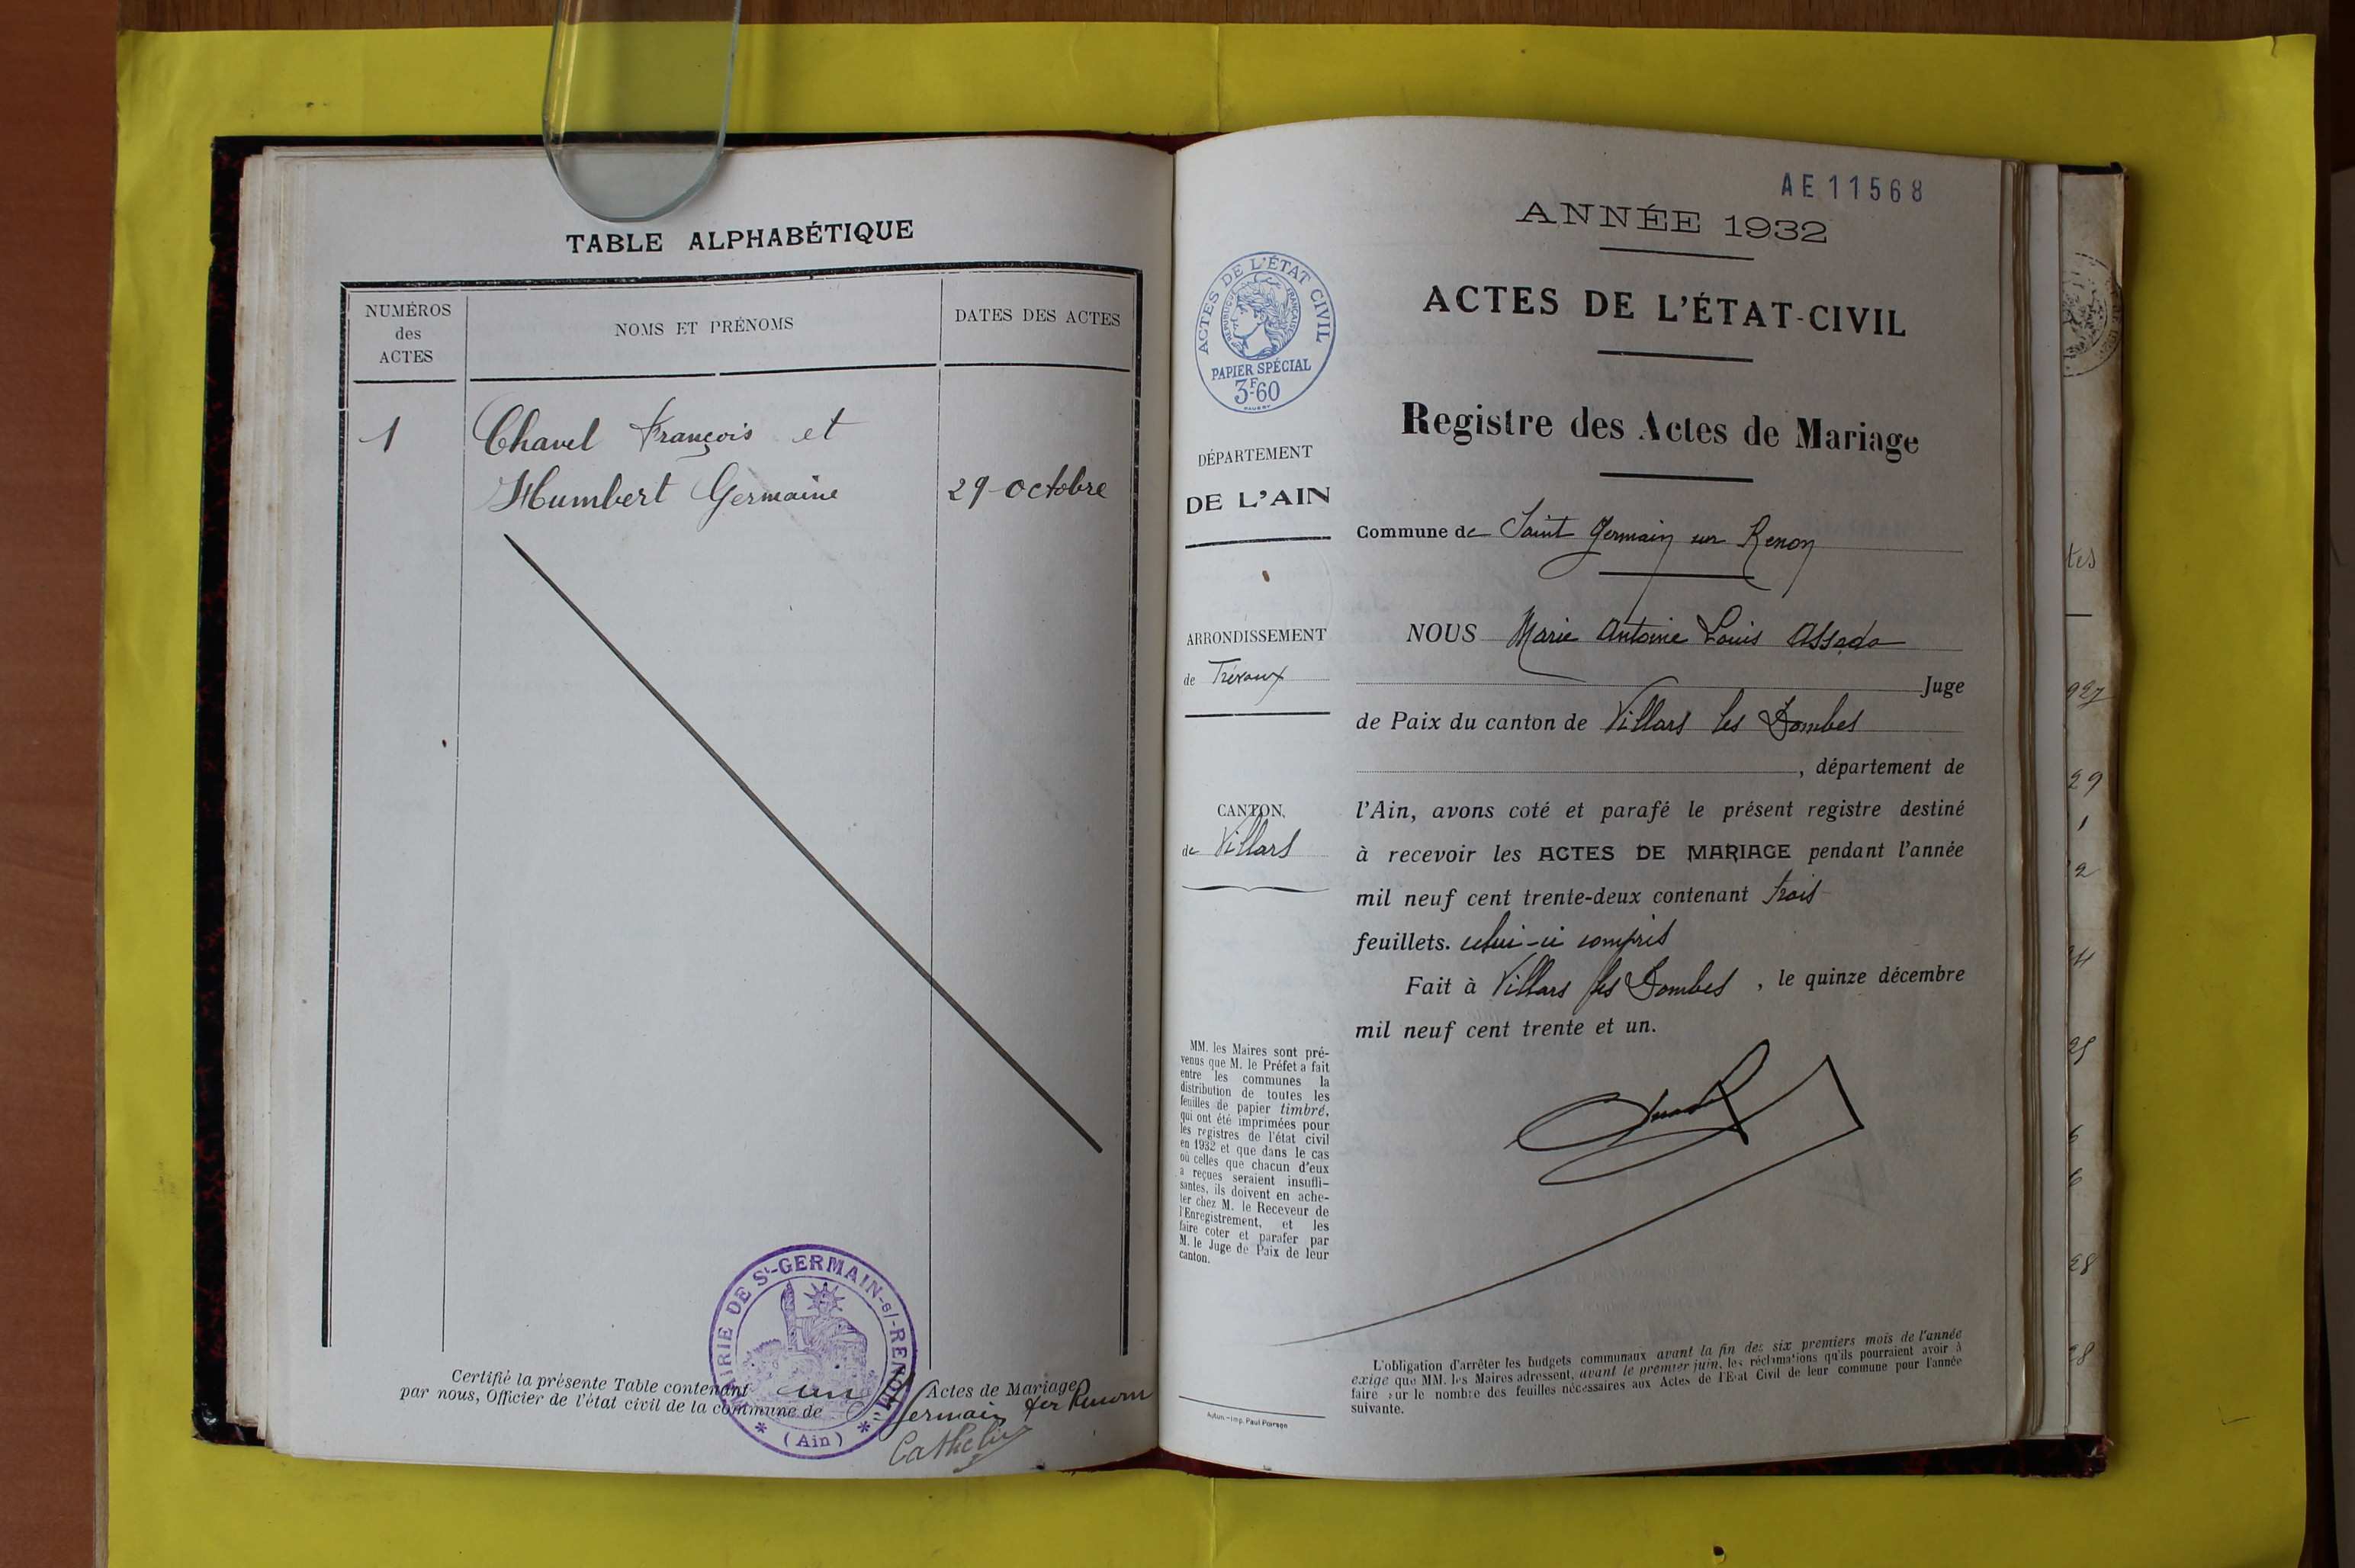 TABLE ALPHABÉTIQUE
NUMÉROS
des
ACTES
NOMS ET PRÉNOMS
DATES DES ACTES
1
Chavel François et
Humbert Germaine
29 octobre
Certifié la présente Table contenant un Actes de Mariage
par nous, Officier de l'état civil de la commune de St Germain sur Renom
Cathelin
MAIRIE DE St-GERMAIN-s/-RENOM
* (Ain) *
AE11568
ANNÉE 1932
ACTES DE L'ÉTAT-CIVIL
Registre des Actes de Mariage
ACTES DE L'ÉTAT CIVIL
RÉPUBLIQUE FRANÇAISE
PAPIER SPÉCIAL
3F60
DÉPARTEMENT
DE L'AIN
ARRONDISSEMENT
de Trévoux
CANTON
de Villars
MM. les Maires sont pré-
venus que M. le Préfet a fait
entre les communes la
distribution de toutes les
feuilles de papier timbré,
qui ont été imprimées pour
les registres de l'état civil
en 1932 et que dans le cas
où celles que chacun d'eux
a reçues seraient insuffi-
santes, ils doivent en ache-
ter chez M. le Receveur de
l'Enregistrement, et les
faire coter et parafer par
M. le Juge de Paix de leur
canton.
Commune de Saint Germain sur Renon
NOUS Marie Antoine Louis Assada
Juge
de Paix du canton de Villars les Dombes
, département de
l'Ain, avons coté et parafé le présent registre destiné
à recevoir les ACTES DE MARIAGE pendant l'année
mil neuf cent trente-deux contenant trois
feuillets. celui-ci compris
Fait à Villars les Dombes, le quinze décembre
mil neuf cent trente et un.
L'obligation d'arrêter les budgets communaux avant la fin des six premiers mois de l'année
exige que MM. les Maires adressent, avant le premier juin, les réclamations qu'ils pourraient avoir à
faire sur le nombre des feuilles nécessaires aux Actes de l'Etat Civil de leur commune pour l'année
suivante.
Autun. - Imp. Paul Pernen
tes
927
29
1
2
24
25
6
6
28
28